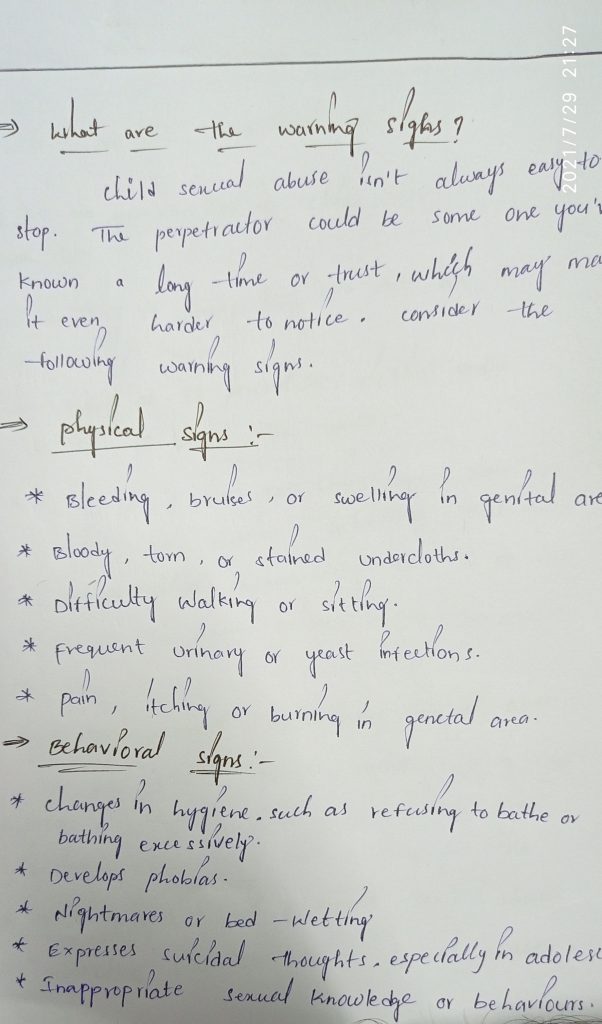 ⇒ What are the warning signs?
child sexual abuse isn't always easy to
stop. The perpetractor could be some one you'v
known a long time or trust, which may ma
it even harder to notice. consider the
following warning signs.
⇒ physical signs :-
* Bleeding, bruises, or swelling in genital are
* Bloody, torn, or stained undercloths.
* Difficulty walking or sitting.
* Frequent urinary or yeast infections.
* pain, itching or burning in genetal area.
⇒ Behavioral signs :-
* changes in hygiene. such as refusing to bathe or
bathing excessively.
* Develops phobias.
* Nightmares or bed -wetting
* Expresses suicidal thoughts. especially in adolesc
* Inappropriate sexual knowledge or behaviours.
2021/7/29 21:27